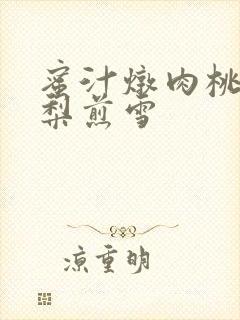 蜜汁燉肉桃
梨煎雪
涼重明